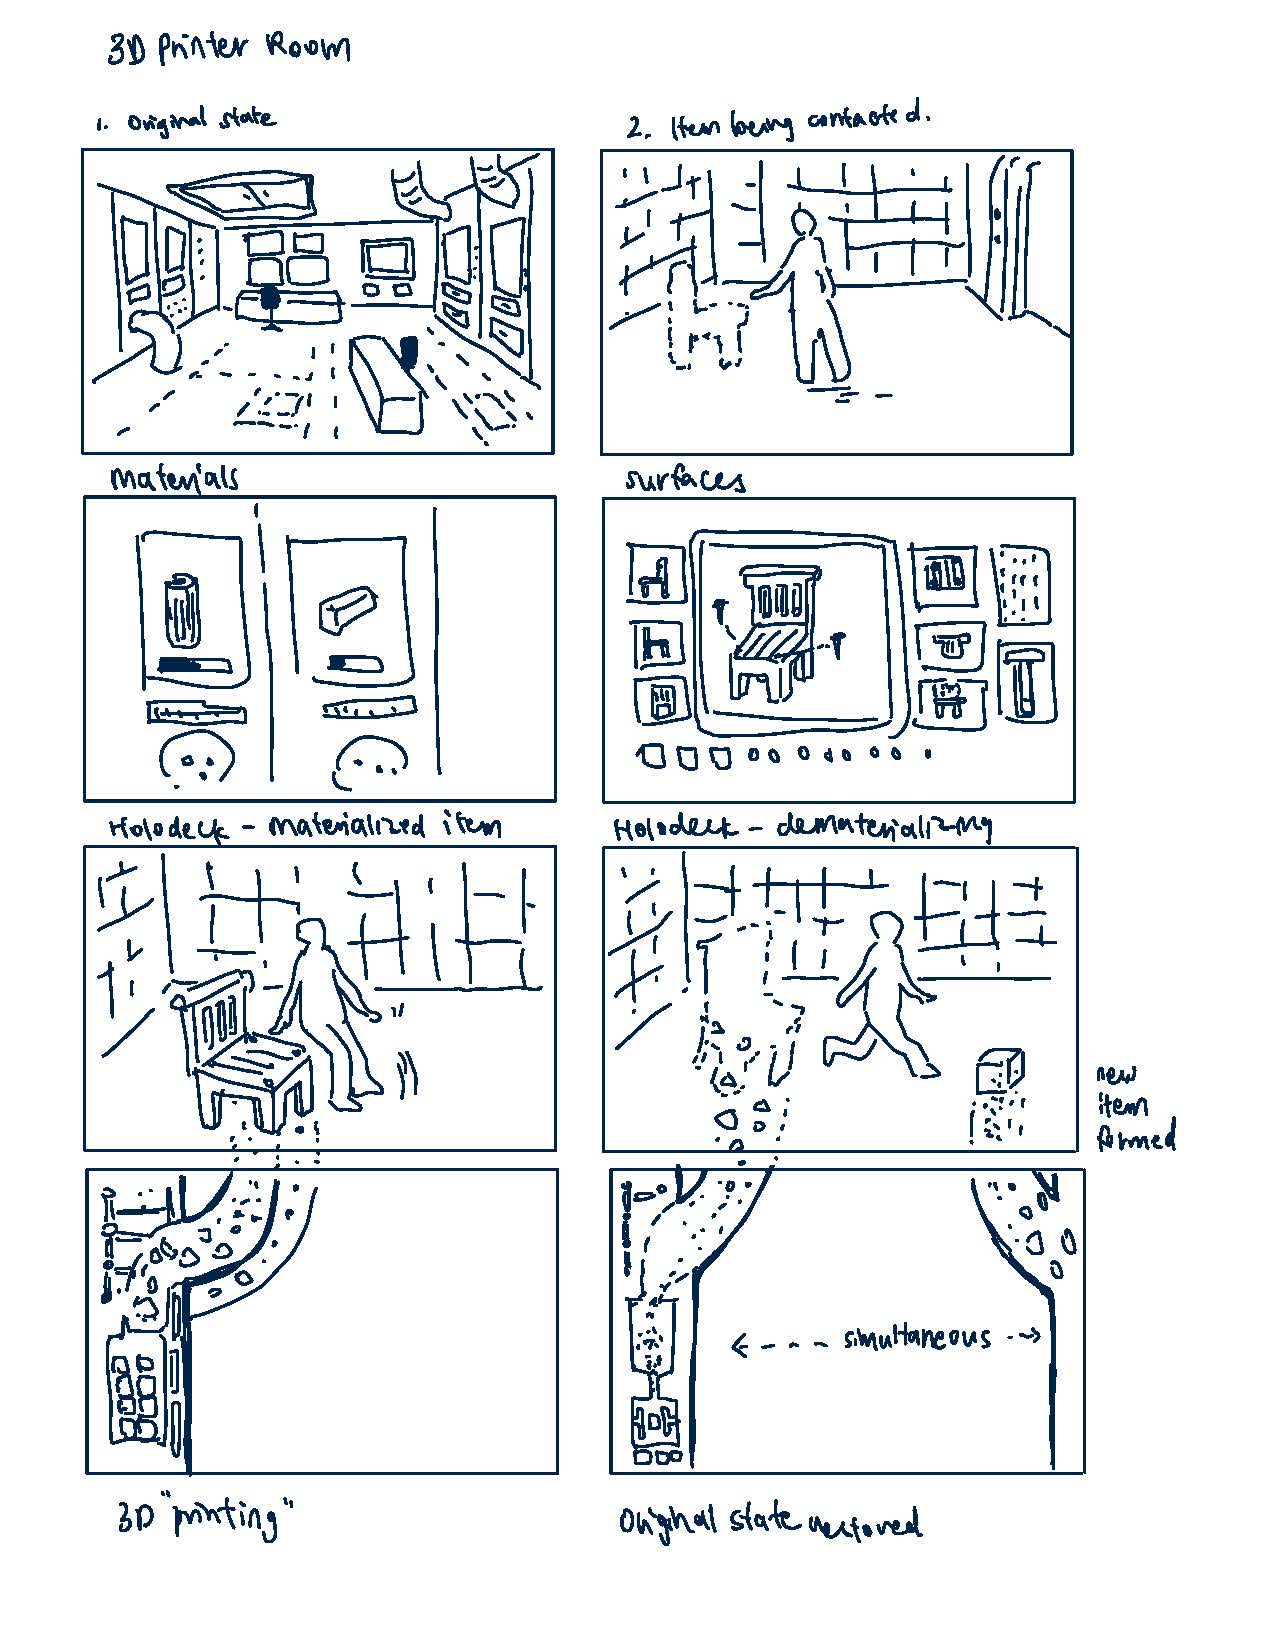 3D Printer Room
1. Original state
2. Item being contacted.
Materials
surfaces
Holodeck - Materialized item
Holodeck - dematerializing
new
item
formed
simultaneous
3D "printing"
Original state restored